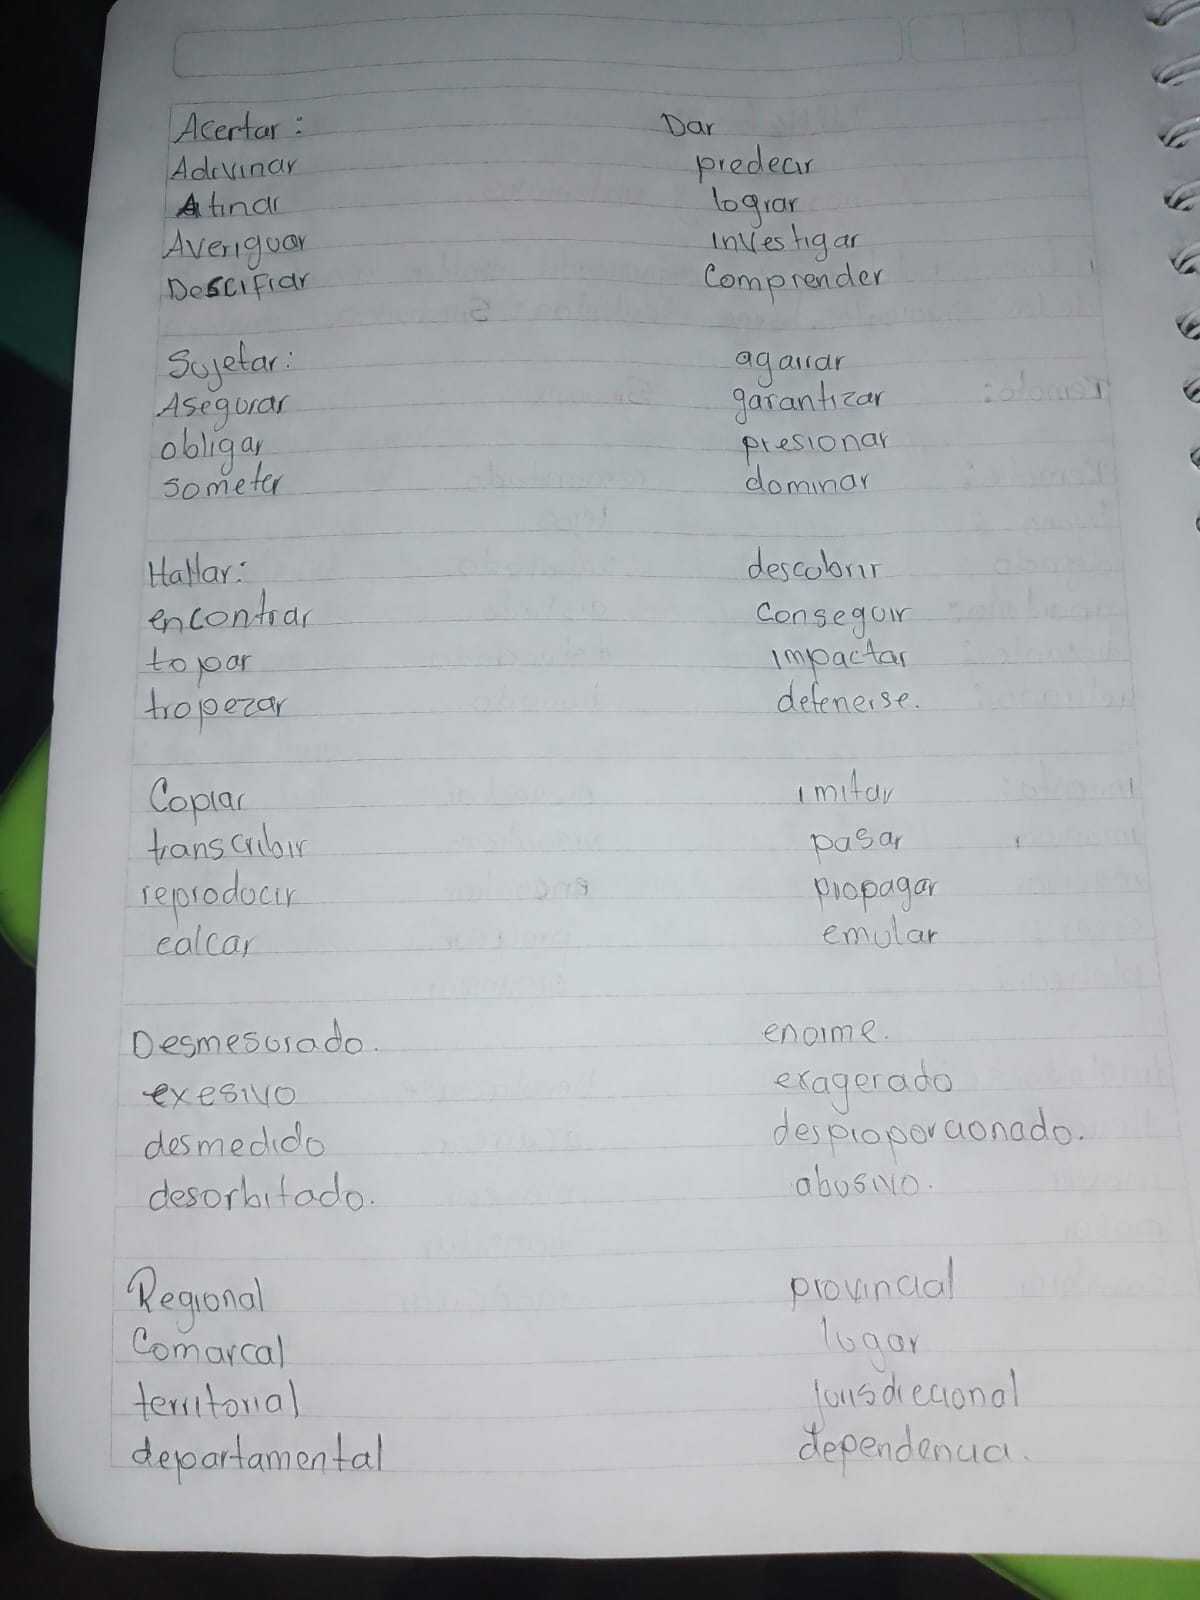 Acertar: Dar
Adivinar predecir
Atinar lograr
Averiguar investigar
Descifrar Comprender
Sujetar: agarrar
Asegurar garantizar
obligar presionar
someter dominar
Hallar: descubrir
encontrar Conseguir
topar impactar
tropezar detenerse.
Copiar imitar
transcribir pasar
reproducir propagar
calcar emular
Desmesurado. enorme.
exesivo exagerado
desmedido desproporcionado.
desorbitado. abusivo.
Regional provincial
Comarcal lugar
territorial jurisdiccional
departamental dependencia.